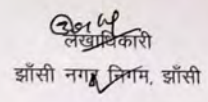 लेखाधिकारी
झाँसी नगर निगम, झाँसी